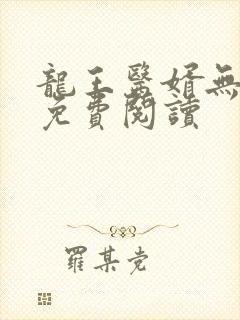 龍王醫婿無
免費閱讀
羅某党